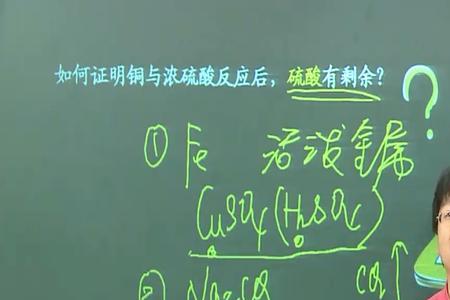 如何证明铜与浓硫酸反应后，硫酸有剩余？
① Fe 活泼金属
CuSO4(H2SO4)
② Na2CO3 CO2↑